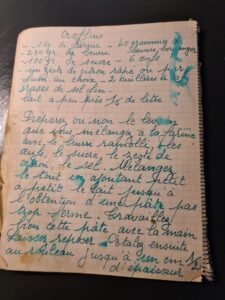 Croffins
- 1 kg de farine - 40 grammes
- 250 gr de beurre (levure boulanger
- 100 gr. de sucre - 6 œufs
- un zeste de citron râpé ou par-
fum au choix - 2 cuillers à c
rases de sel fin.
lait à peu près 1/2 de litre
Préparez ou non le levain
que vous mélangez à la farine
avec le beurre ramolli, les
œufs, le sucre, le zeste de
citron, le sel. Mélangez
le tout en ajoutant petit
à petit le lait jusqu'à
l'obtention d'une pâte pas
trop ferme. Travaillez
bien cette pâte avec la main
Laissez reposer. Etalez ensuite
au rouleau jusqu'à 1 cm 1/2
d'épaisseur